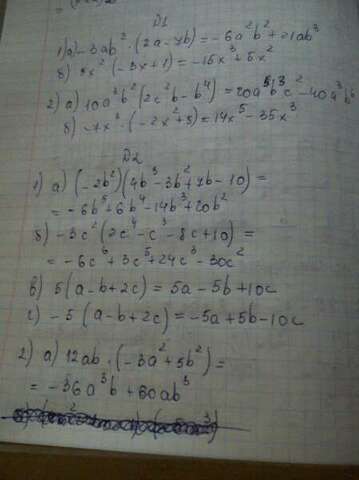 D1
1) а) -3ab² · (2a - 7b) = -6a²b² + 21ab³
б) 5x² (-3x + 1) = -15x³ + 5x²
2) а) 10a³b² (2c²b - b⁴) = 20a³b³c² - 10a³b⁶
б) -7x³ · (-2x² + 5) = 14x⁵ - 35x³
D2
1) а) (-2b²) (4b³ - 3b² + 7b - 10) =
= -6b⁵ + 6b⁴ - 14b³ + 20b²
б) -3c² (2c⁴ - c³ - 8c + 10) =
= -6c⁶ + 3c⁵ + 24c³ - 30c²
в) 5 (a - b + 2c) = 5a - 5b + 10c
г) -5 (a - b + 2c) = -5a + 5b - 10c
2) а) 12ab · (-3a² + 5b²) =
= -36a³b + 60ab³